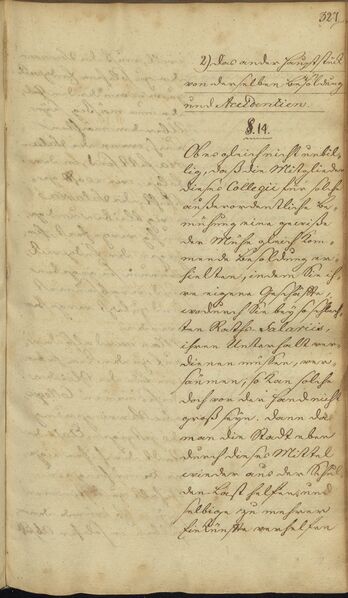 327.
2) Das ander Hauptstück
von derselben Besoldung
und Accidentien.
§. 14.
Ob es gleich nicht unbil-
lig, daß die Mitglieder
dieses Collegii für solche
außerordentliche Be-
mühung eine gewiße
der Mühe gleich kom-
mende Besoldung er-
hielten, indem Sie ih-
re eigene Geschäffte,
wodurch Sie bey so schlech-
ten Raths Salariis,
ihren Unterhalt ver-
dienen müssen, ver-
säumen; so kan solche
doch vor der Hand nicht
groß seyn. dann da
man die Stadt eben
durch dieses Mittel
wieder aus der Schul-
den Last helfen, und
selbige zu mehrer
Einkünfte verhelfen